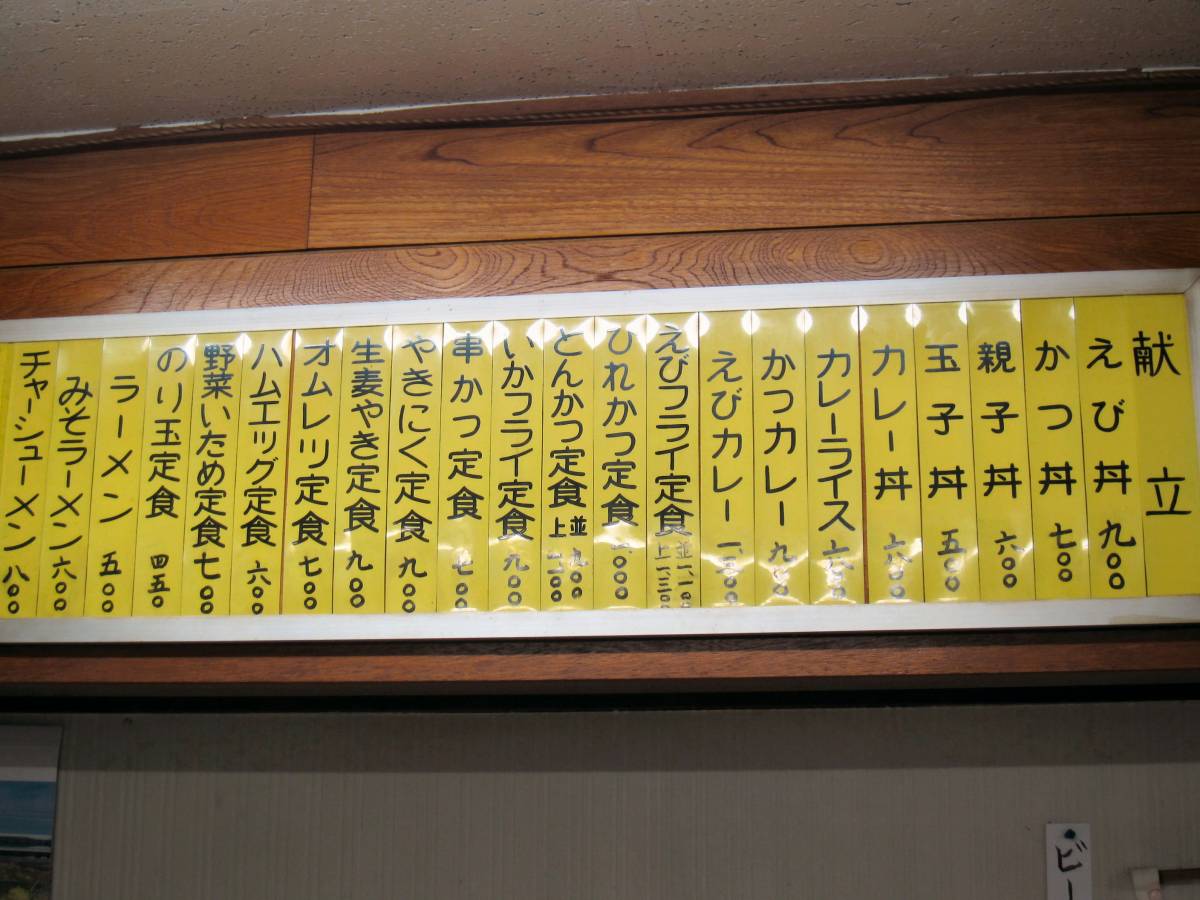 献立
えび丼 九〇〇
かつ丼 七〇〇
親子丼 六〇〇
玉子丼 五〇〇
カレー丼 六〇〇
カレーライス 六〇〇
かつカレー 九〇〇
えびカレー
えびフライ定食 並 一、一〇〇 上 一、三〇〇
ひれかつ定食
とんかつ定食 並 九〇〇 上
串かつ定食 七〇〇
いかフライ定食 九〇〇
やきにく定食 九〇〇
生姜やき定食 九〇〇
オムレツ定食 七〇〇
ハムエッグ定食 六〇〇
野菜いため定食 七〇〇
のり玉定食 四五〇
ラーメン 五〇〇
みそラーメン 六〇〇
チャーシューメン 八〇〇
ビー